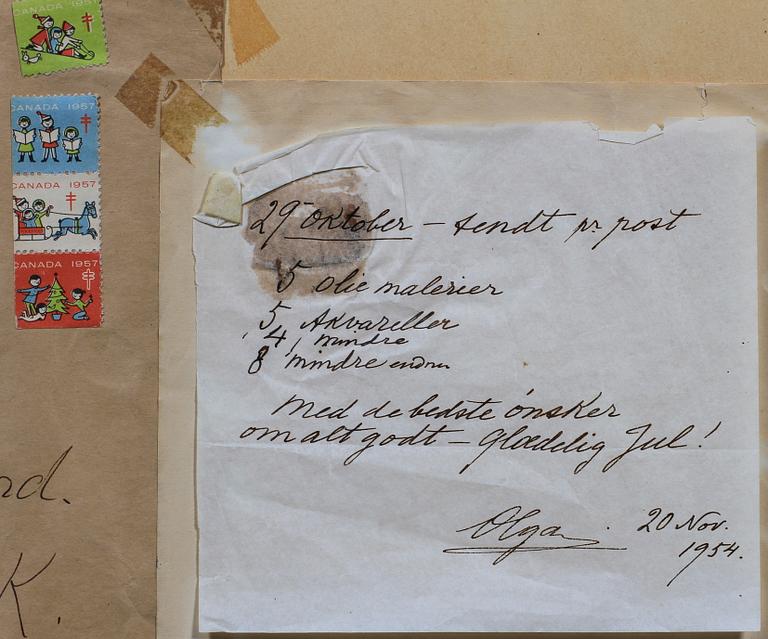 CANADA 1957
CANADA 1957
CANADA 1957
rd.
K.
29 Oktober – sendt pr post
5 olie malerier
5 Akvareller
4 mindre
8 mindre endnu
Med de bedste ønsker
om alt godt – Glædelig Jul!
Olga.
20 Nov.
1954.